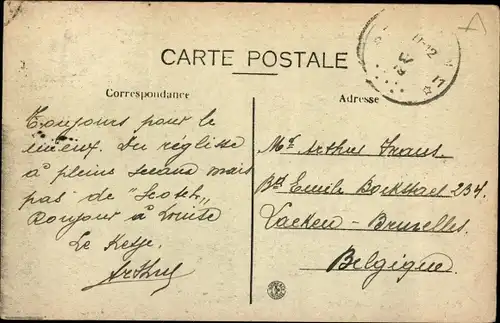 CARTE POSTALE
Correspondance
Adresse
Toujours pour le
mieux. Du réglisse
à pleins seaux mais
pas de "Scotch"
Bonjour à Louise
Le Ketje.
Arthur
Mr Arthur Frans.
Bd Emile Bockstael 234.
Laeken - Bruxelles.
Belgique.
11-12